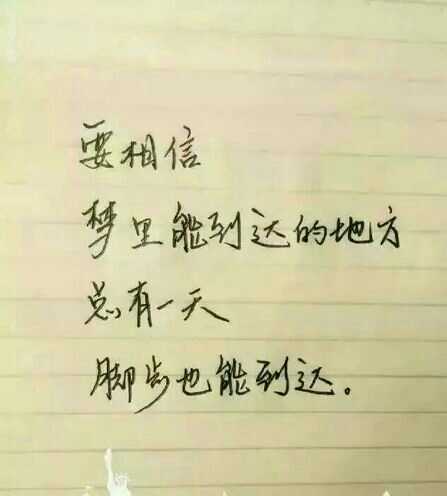 要相信
梦里能到达的地方
总有一天
脚步也能到达。